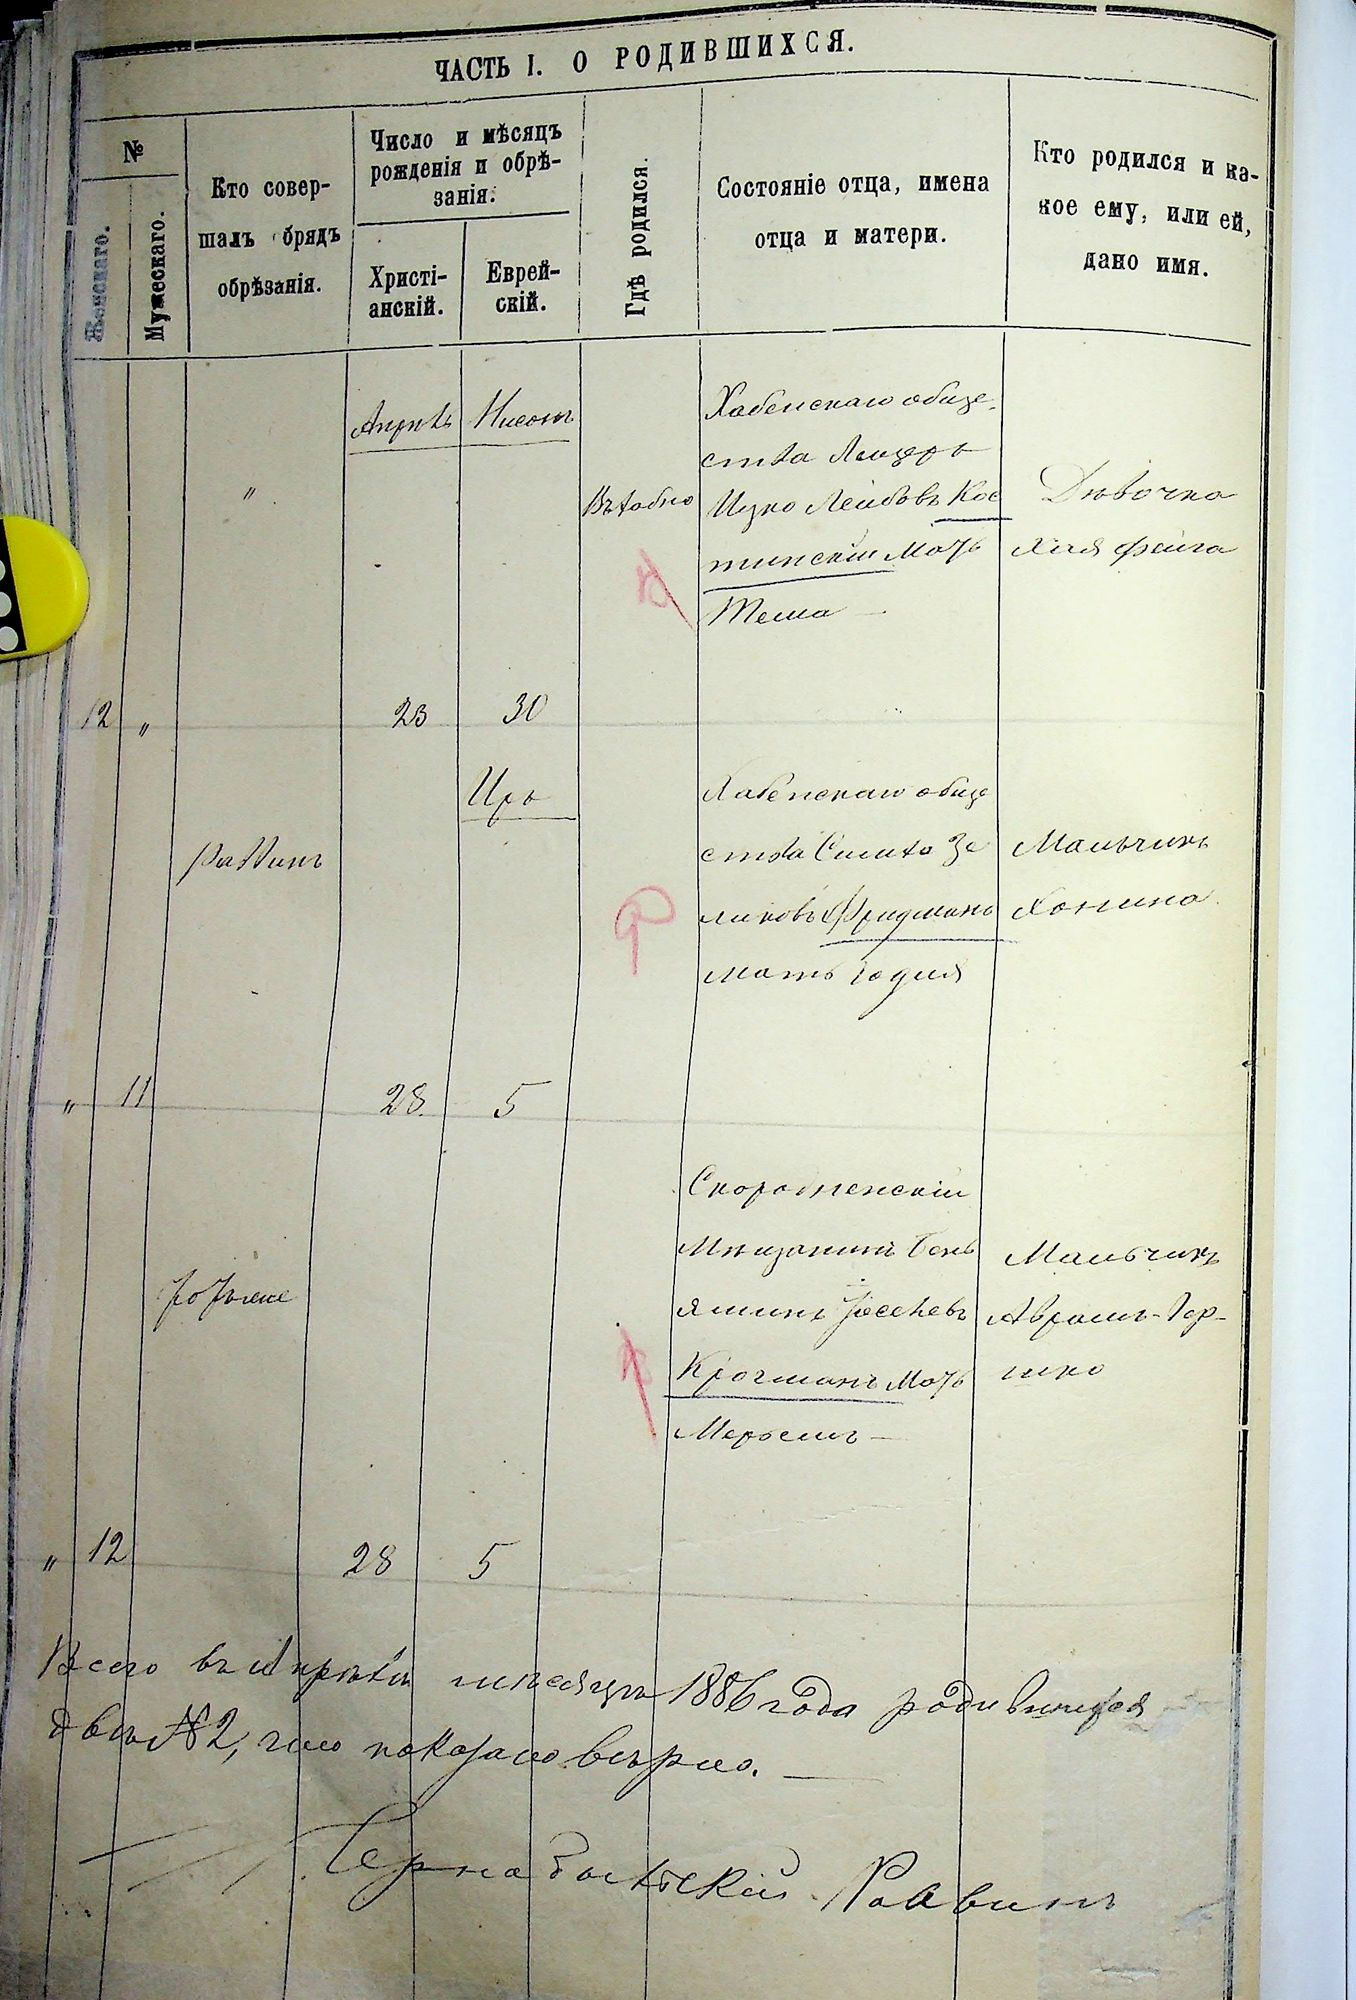 ЧАСТЬ I. О РОДИВШИХСЯ.
№
Женскаго.
Мужескаго.
Кто совер-
шалъ обрядъ
обрѣзанія.
Число и мѣсяцъ
рожденія и обрѣ-
занія.
Христі-
анскій.
Еврей-
скій.
Гдѣ родился.
Состояніе отца, имена
отца и матери.
Кто родился и ка-
кое ему, или ей,
дано имя.
12
"
"
Апрѣль
23
Нисонъ
30
Хабенскаго обще-
ства
Ицко Лейбовъ Кос
тинскій Мать
Тема —
Дѣвочка
Хая Фейга
"
11
Раввинъ
28
Иръ
5
Хабенскаго обще
ства Зе
ликовъ Фридманъ
мать Годия
Мальчикъ
Хонина
"
12
28
5
Скороднскій
Мѣщанинъ Бень
яминъ Іосевъ
Крочманъ Мать
Мерьемъ —
Мальчикъ
Аврамъ-Гер-
шко
Всего въ Апрѣлѣ мѣсяцѣ 1886 года родившихся
два №2, что показано вѣрно. —
Раввинъ